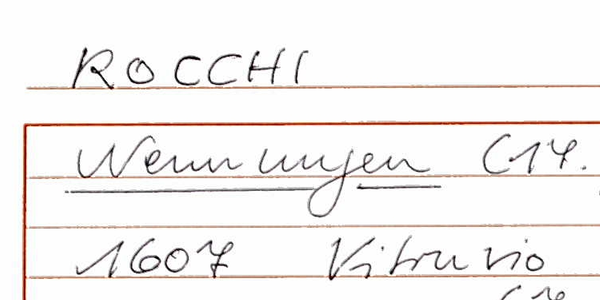 ROCCHI
Nennungen (17.
1607 Vitruvio
(17